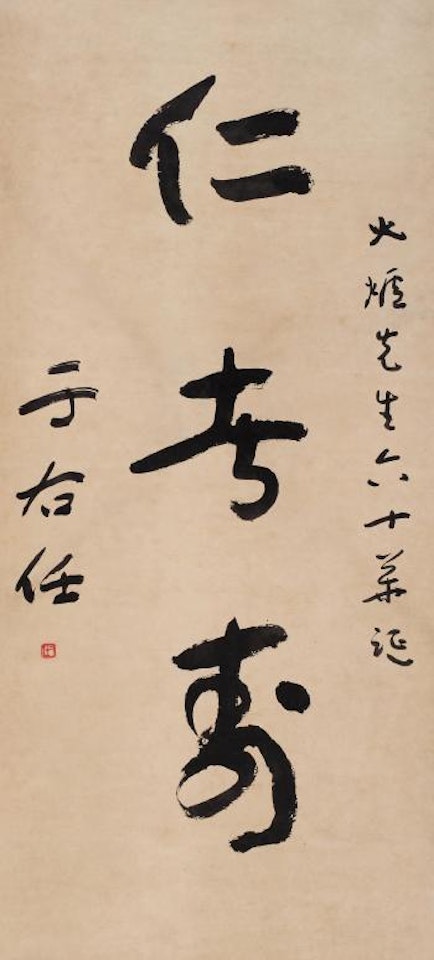 火爐先生六十華誕
仁者壽
于右任